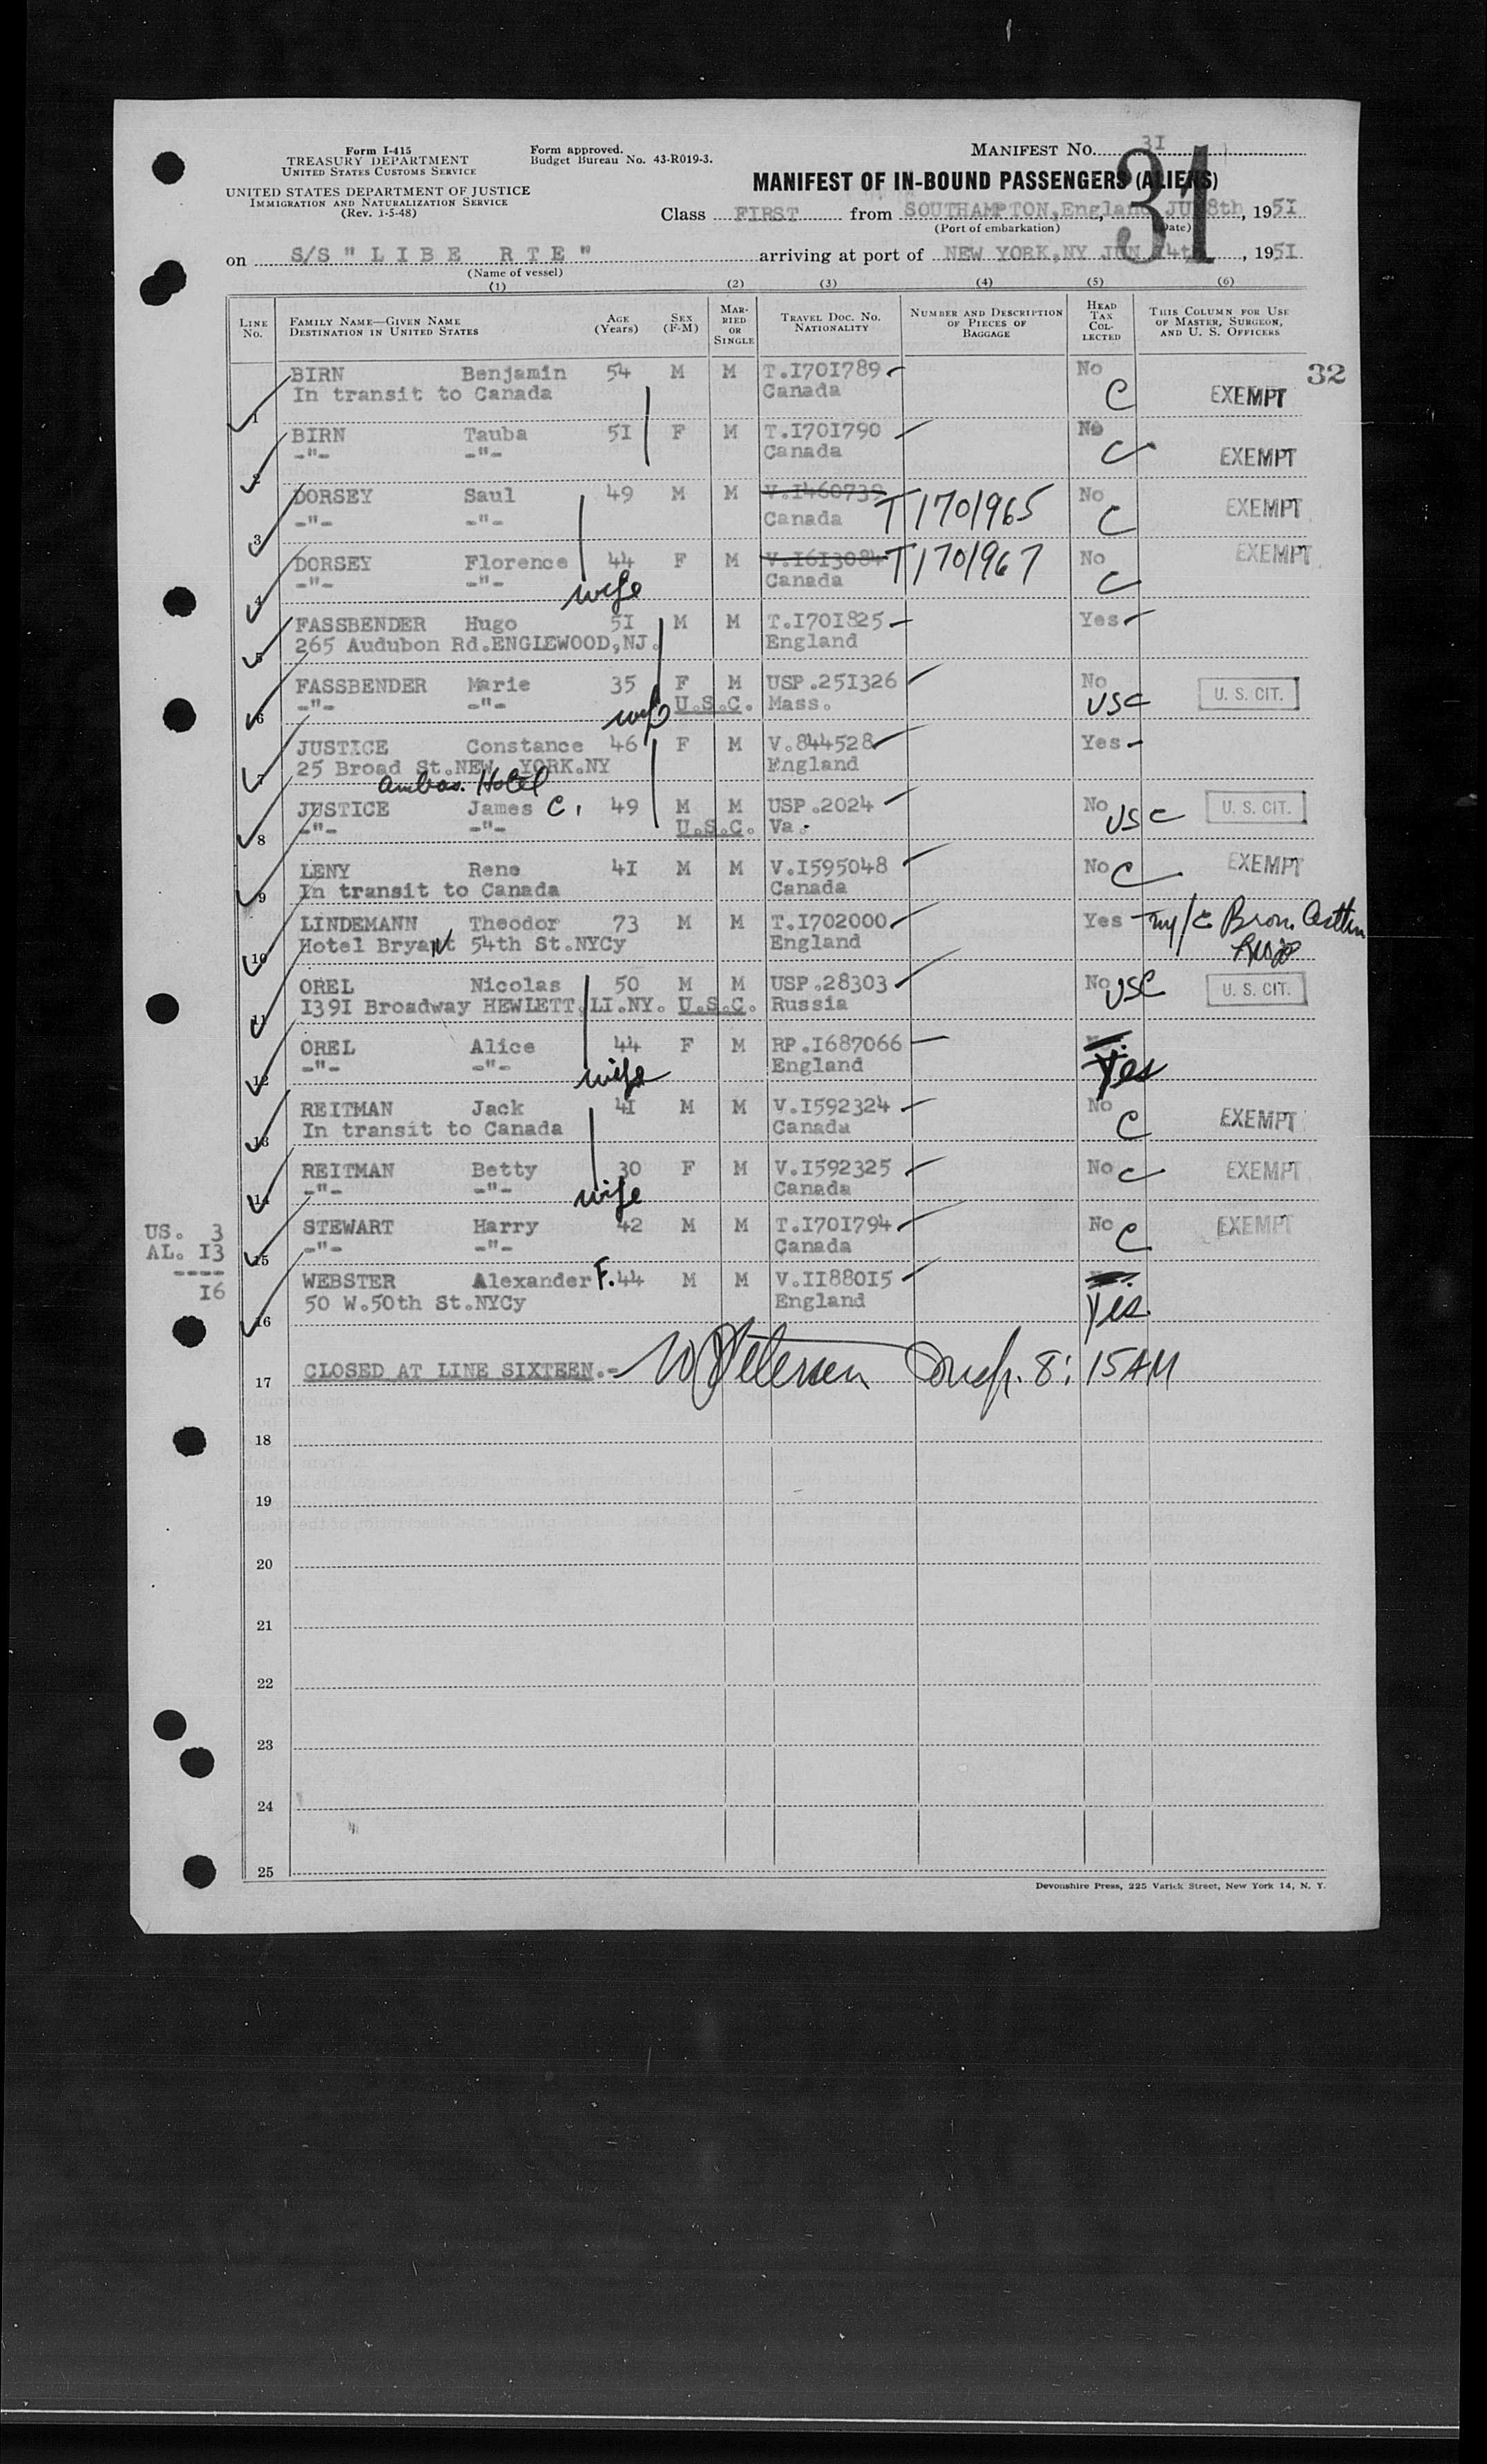 Form I-415
TREASURY DEPARTMENT
UNITED STATES CUSTOMS SERVICE
UNITED STATES DEPARTMENT OF JUSTICE
IMMIGRATION AND NATURALIZATION SERVICE
(Rev. 1-5-48)
Form approved.
Budget Bureau No. 43-R019-3.
MANIFEST No. 31
31
MANIFEST OF IN-BOUND PASSENGERS (ALIENS)
Class FIRST from SOUTHAMPTON,England, 8th, 1951
(Port of embarkation) (Date)
on S/S " L I B E R T E " arriving at port of NEW YORK,NY JUN 14th, 1951
(Name of vessel)
(1) (2) (3) (4) (5) (6)
LINE No. FAMILY NAME—GIVEN NAME DESTINATION IN UNITED STATES AGE (Years) SEX (F-M) MARRIED OR SINGLE TRAVEL DOC. NO. NATIONALITY NUMBER AND DESCRIPTION OF PIECES OF BAGGAGE HEAD TAX COLLECTED THIS COLUMN FOR USE OF MASTER, SURGEON, AND U. S. OFFICERS
32
1 BIRN Benjamin 54 M M T.I701789 No
In transit to Canada Canada C EXEMPT
2 BIRN Tauba 51 F M T.I701790 No
-"- -"- Canada C EXEMPT
3 DORSEY Saul 49 M M V.I460739 T1701965 No
-"- -"- Canada C EXEMPT
4 DORSEY Florence 44 F M V.I613084 T1701967 No EXEMPT
-"- -"- wife Canada C
5 FASSBENDER Hugo 51 M M T.I701825 Yes
265 Audubon Rd.ENGLEWOOD,NJ. England
6 FASSBENDER Marie 35 F M USP.251326 No
-"- -"- wife U.S.C. Mass. USC U. S. CIT.
7 JUSTICE Constance 46 F M V.844528 Yes
25 Broad St.NEW YORK.NY England
Ambas. Hotel
8 JUSTICE James C. 49 M M USP.2024 No USC U. S. CIT.
-"- -"- U.S.C. Va.
9 LENY Rene 41 M M V.I595048 No C EXEMPT
In transit to Canada Canada
10 LINDEMANN Theodor 73 M M T.I702000 Yes
Hotel Bryant 54th St.NYCy England
11 OREL Nicolas 50 M M USP.28303 No USC U. S. CIT.
1391 Broadway HEWLETT.LI.NY. U.S.C. Russia
12 OREL Alice 44 F M RP.I687066
-"- -"- wife England Yes
13 REITMAN Jack 41 M M V.I592324 No
In transit to Canada Canada C EXEMPT
14 REITMAN Betty 30 F M V.I592325 No C EXEMPT
-"- -"- wife Canada
US. 3
AL. 13
----
16
15 STEWART Harry 42 M M T.I701794 No C EXEMPT
-"- -"- Canada
16 WEBSTER Alexander F. 44 M M V.II88015
50 W.50th St.NYCy England Yes
17 CLOSED AT LINE SIXTEEN.- Petersen 8:15AM
18
19
20
21
22
23
24
25
Devonshire Press, 225 Varick Street, New York 14, N. Y.